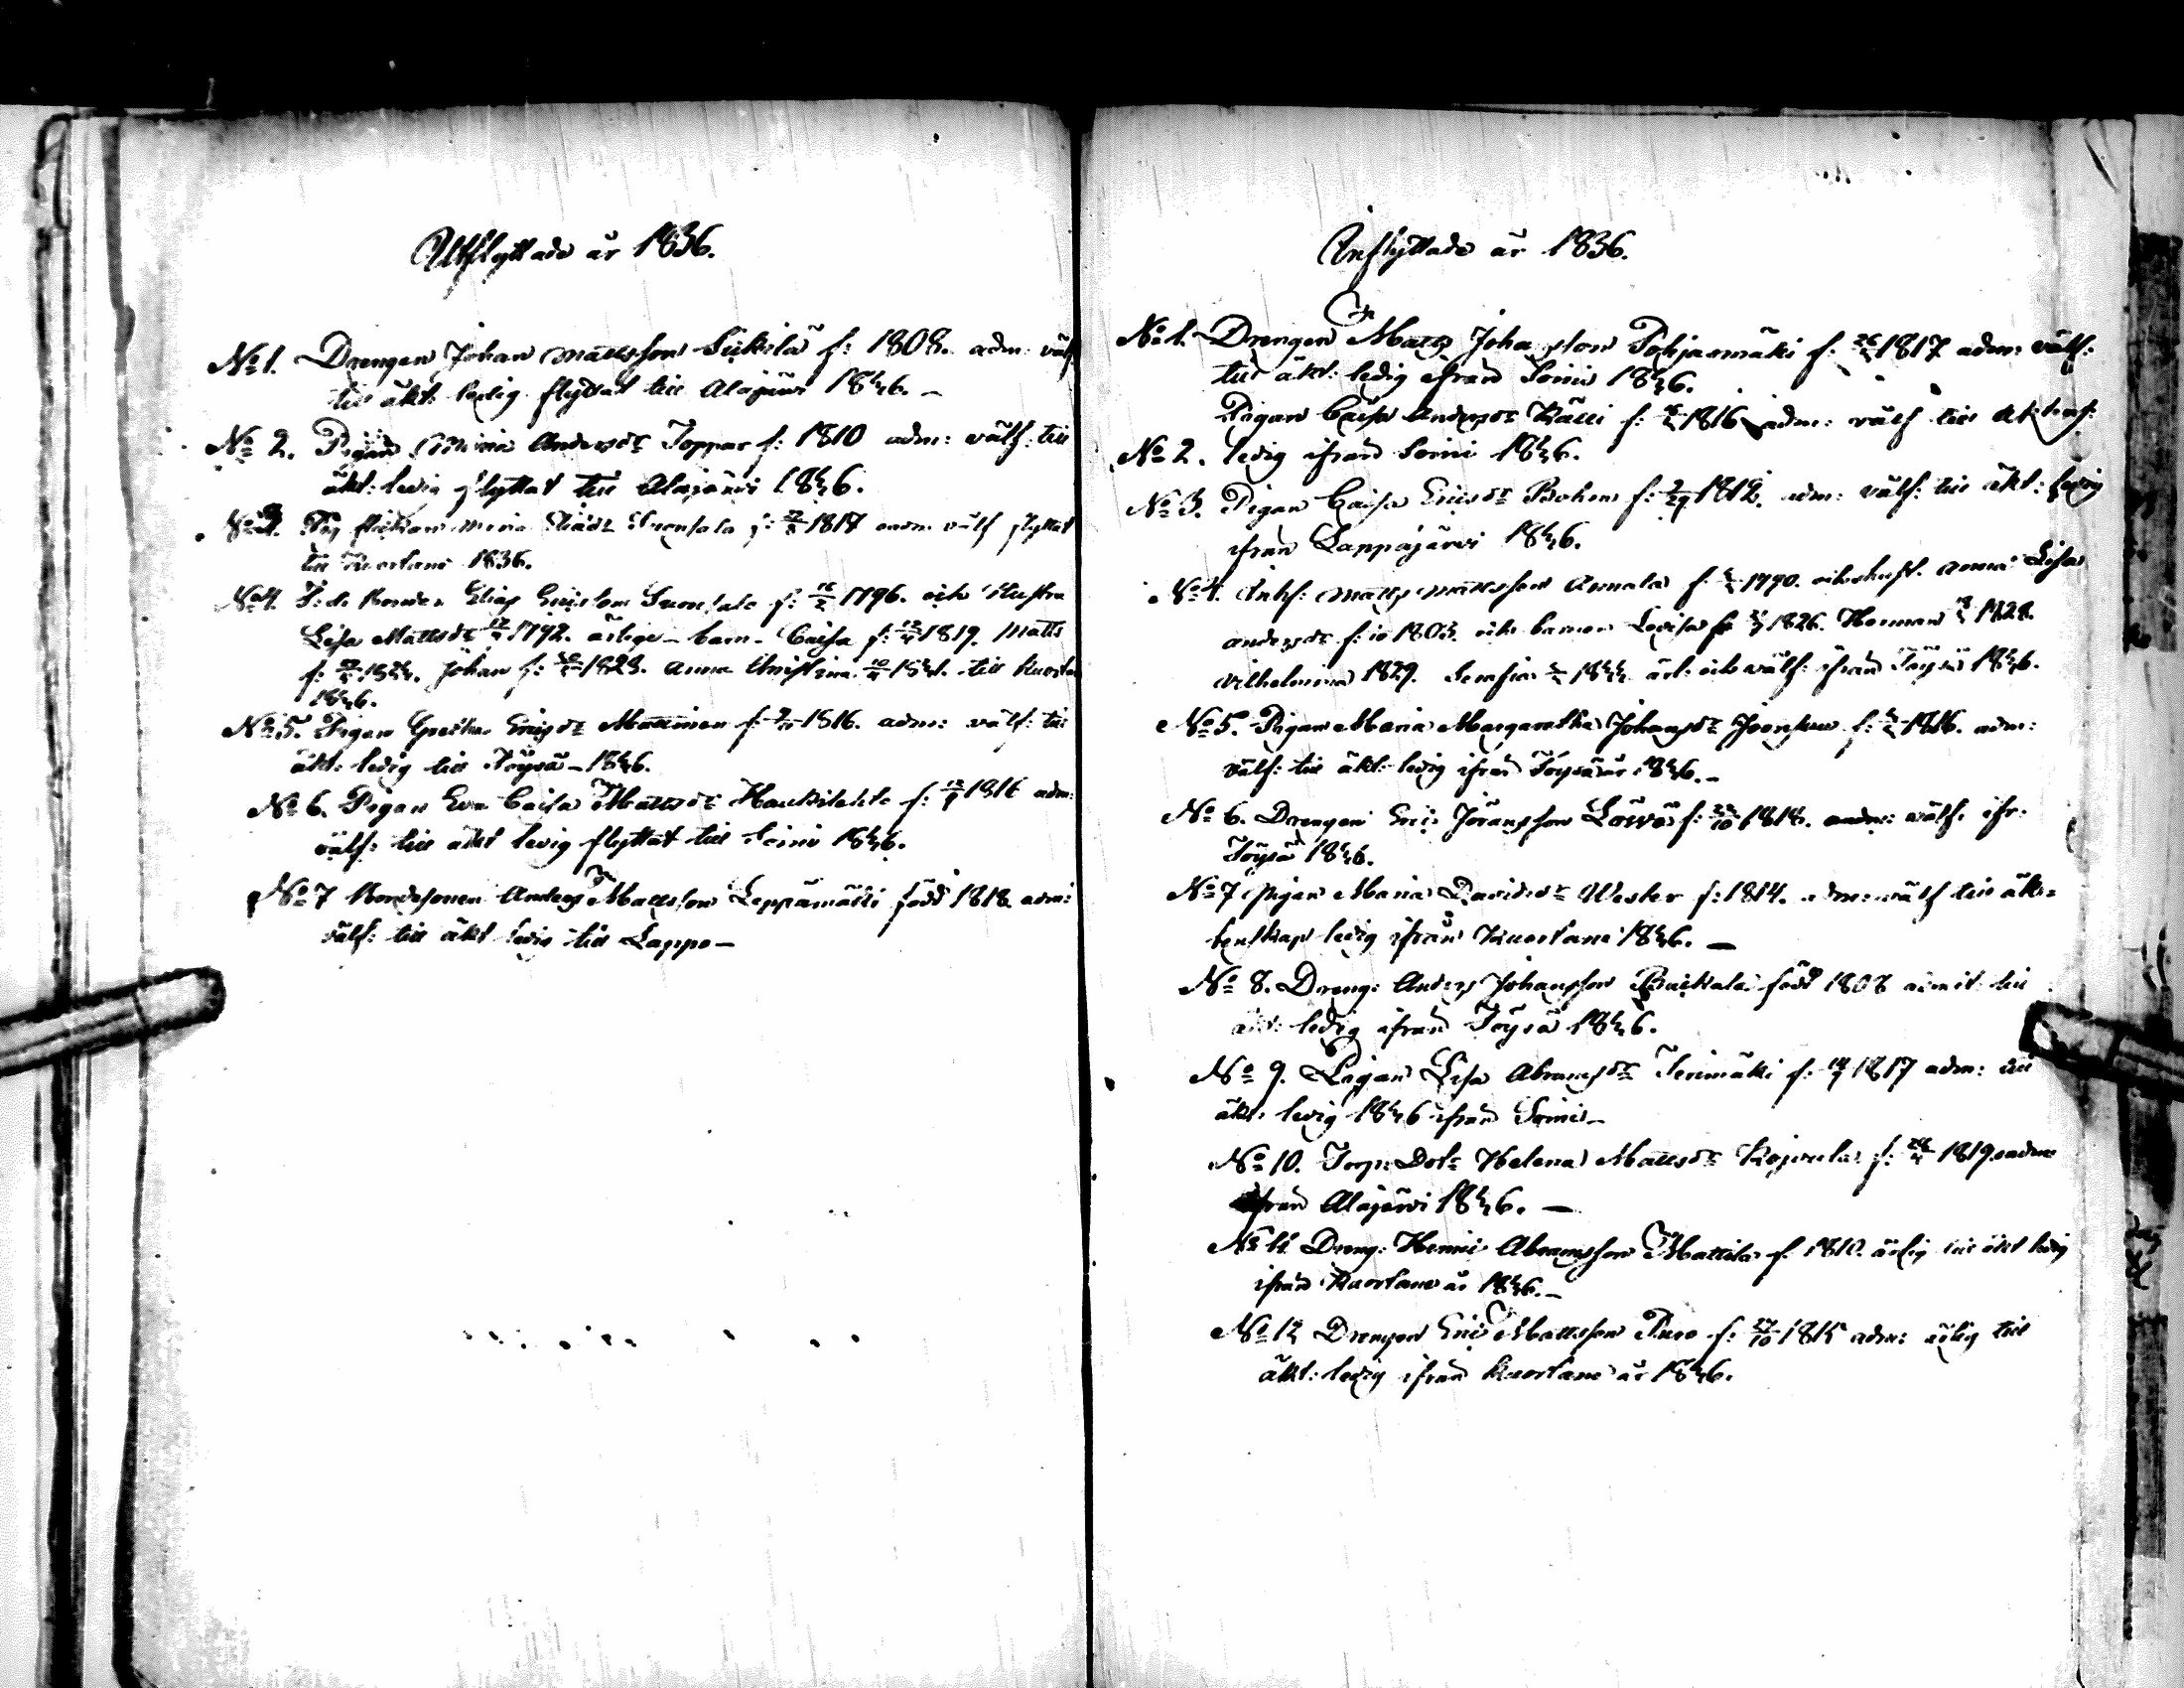 Utflyttade år 1836.
No 1. Drengen Johan Mattsson f: 1808. adm: välf
till äkt: ledig flyttat till Alajärvi 1836. –
No 2. Pigan Maria Andersdr Toppar f: 1810 adm: välf: till
äkt: ledig flyttat till Alajärvi 1836.
No 3. flickan Maria f: 1817 adm välf flyttat
till Kuortane 1836.
No 4. Bonden Elias Ericsson f: 1796. och Hustru
Lisa Mattsdr 1792. ärlige – barn – Caisa f: 1819. Matts
f: Johan f: 1823. Anna Christina till Kuortane
1836.
No 5. Pigan Greta Ericsdr Mattinen f: 1816. adm: välf: till
äkt: ledig till Töysä – 1836.
No 6. Pigan Eva Caisa Mattsdr f: 1816 adm:
välf: till äkt ledig flyttat till Soini 1836.
No 7 Bondesonen Anders Mattsson Leppämäki född 1818 adm:
välf: till äkt ledig till Lappo –
Inflyttade år 1836.
No 1. Drengen Matts Johansson Pohjasmäki f: 26 1817 adm: välf:
till äkt: ledig ifrån Soini 1836.
Pigan Caisa Andersdr Källi f: 1816 adm: välf till äktensk:
No 2. ledig ifrån Soini 1836.
No 3. Pigan Caisa Ericsdr f: 1812. adm: välf: till äkt: ledig
ifrån Lappajärvi 1836.
No 4. Inhs: Matts Mattsson Annala f: 1790. och hust. Anna Lisa
Andersdr f: och barnen Lovisa 1826. Herman 1828.
Vilhelmina 1829. Serafia ärl: och välf: ifrån Töysä 1836.
No 5. Pigan Maria Margaretha Johansdr f: 1816. adm:
välf: till äkt: ledig ifrån Töysä år 1836. –
No 6. Drengen Eric Göransson f: 1818. adm: välf: ifr.
Töysä 1836.
No 7 Pigan Maria Davidsdr Wester f: 1814. adm: välf till äk=
tenskap ledig ifrån Kuortane 1836. –
No 8. Dreng: Anders Johansson född 1808 admit till
äkt: ledig ifrån Töysä 1836.
No 9. Pigan Lisa Abramsdr Terimäki f: 1817 adm: till
äkt: ledig 1836 ifrån Soini –
No 10. Torp: Dotr Helena Mattsdr f: 1819 adm:
ifrån Alajärvi 1836. –
No 11. Dreng: Henric Abramsson Mattila f. 1810. ärlig till äkt ledig
ifrån Kuortane år 1836. –
No 12 Drengen Eric Mattsson Puro f: 27/10 1815 adm: ärlig till
äkt: ledig ifrån Kuortane år 1836.